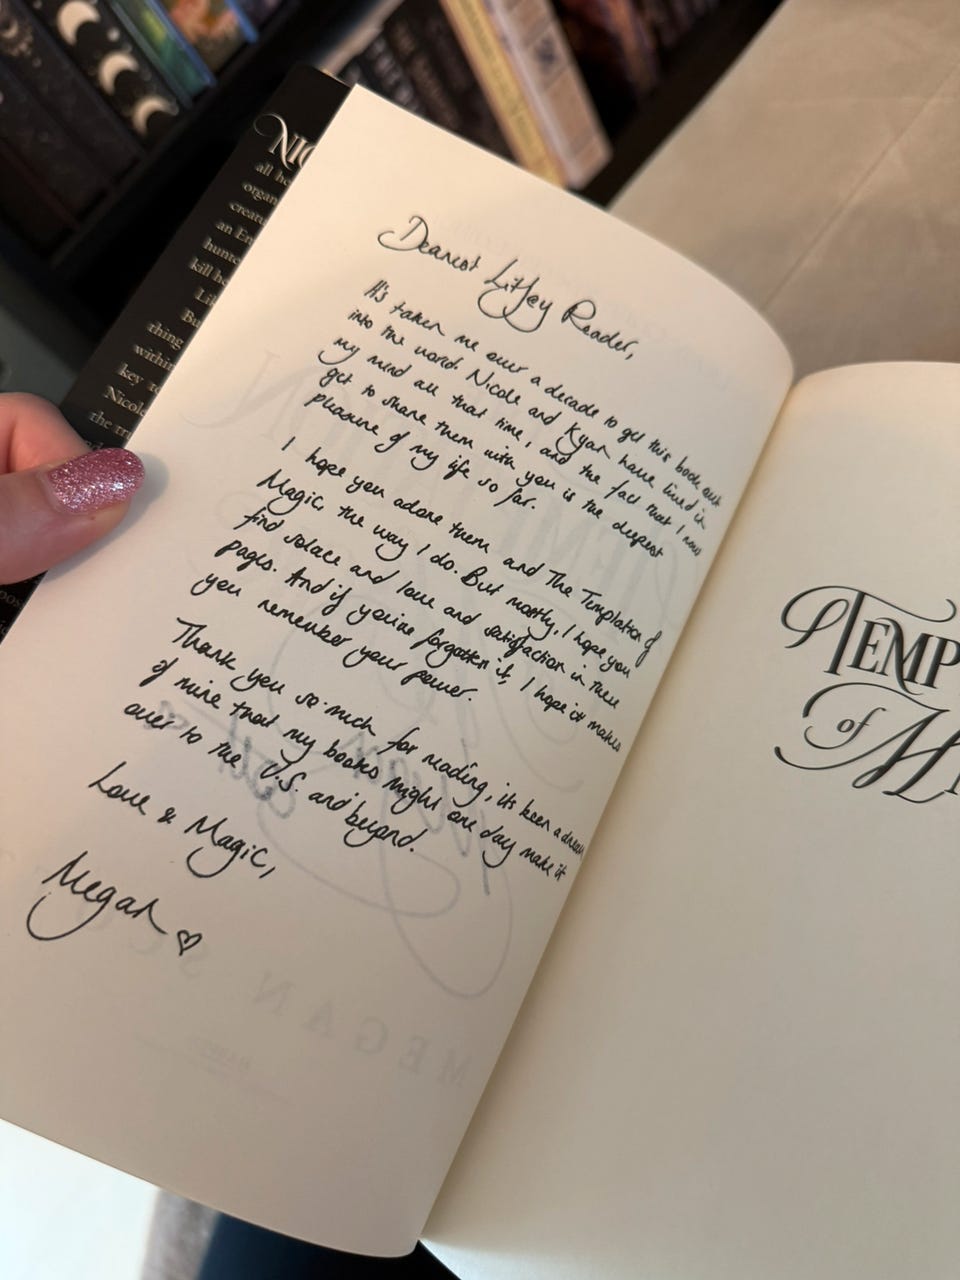 Dearest LitJoy Reader,
It's taken me over a decade to get this book out
into the world. Nicole and Kyan have lived in
my mind all that time, and the fact that I now
get to share them with you is the deepest
pleasure of my life so far.
I hope you adore them and The Temptation of
Magic, the way I do. But mostly, I hope you
find solace and love and satisfaction in these
pages. And if you've forgotten it, I hope it makes
you remember your power.
Thank you so much for reading, it's been a dream
of mine that my books might one day make it
over to the U.S. and beyond.
Love & Magic,
Megan
NIC
all he
organ
creatu
an En
hunte
kill he
Lil
Bu
thing
within
key to
Nicole
the tru
TEMP
of M
MEGAN SC